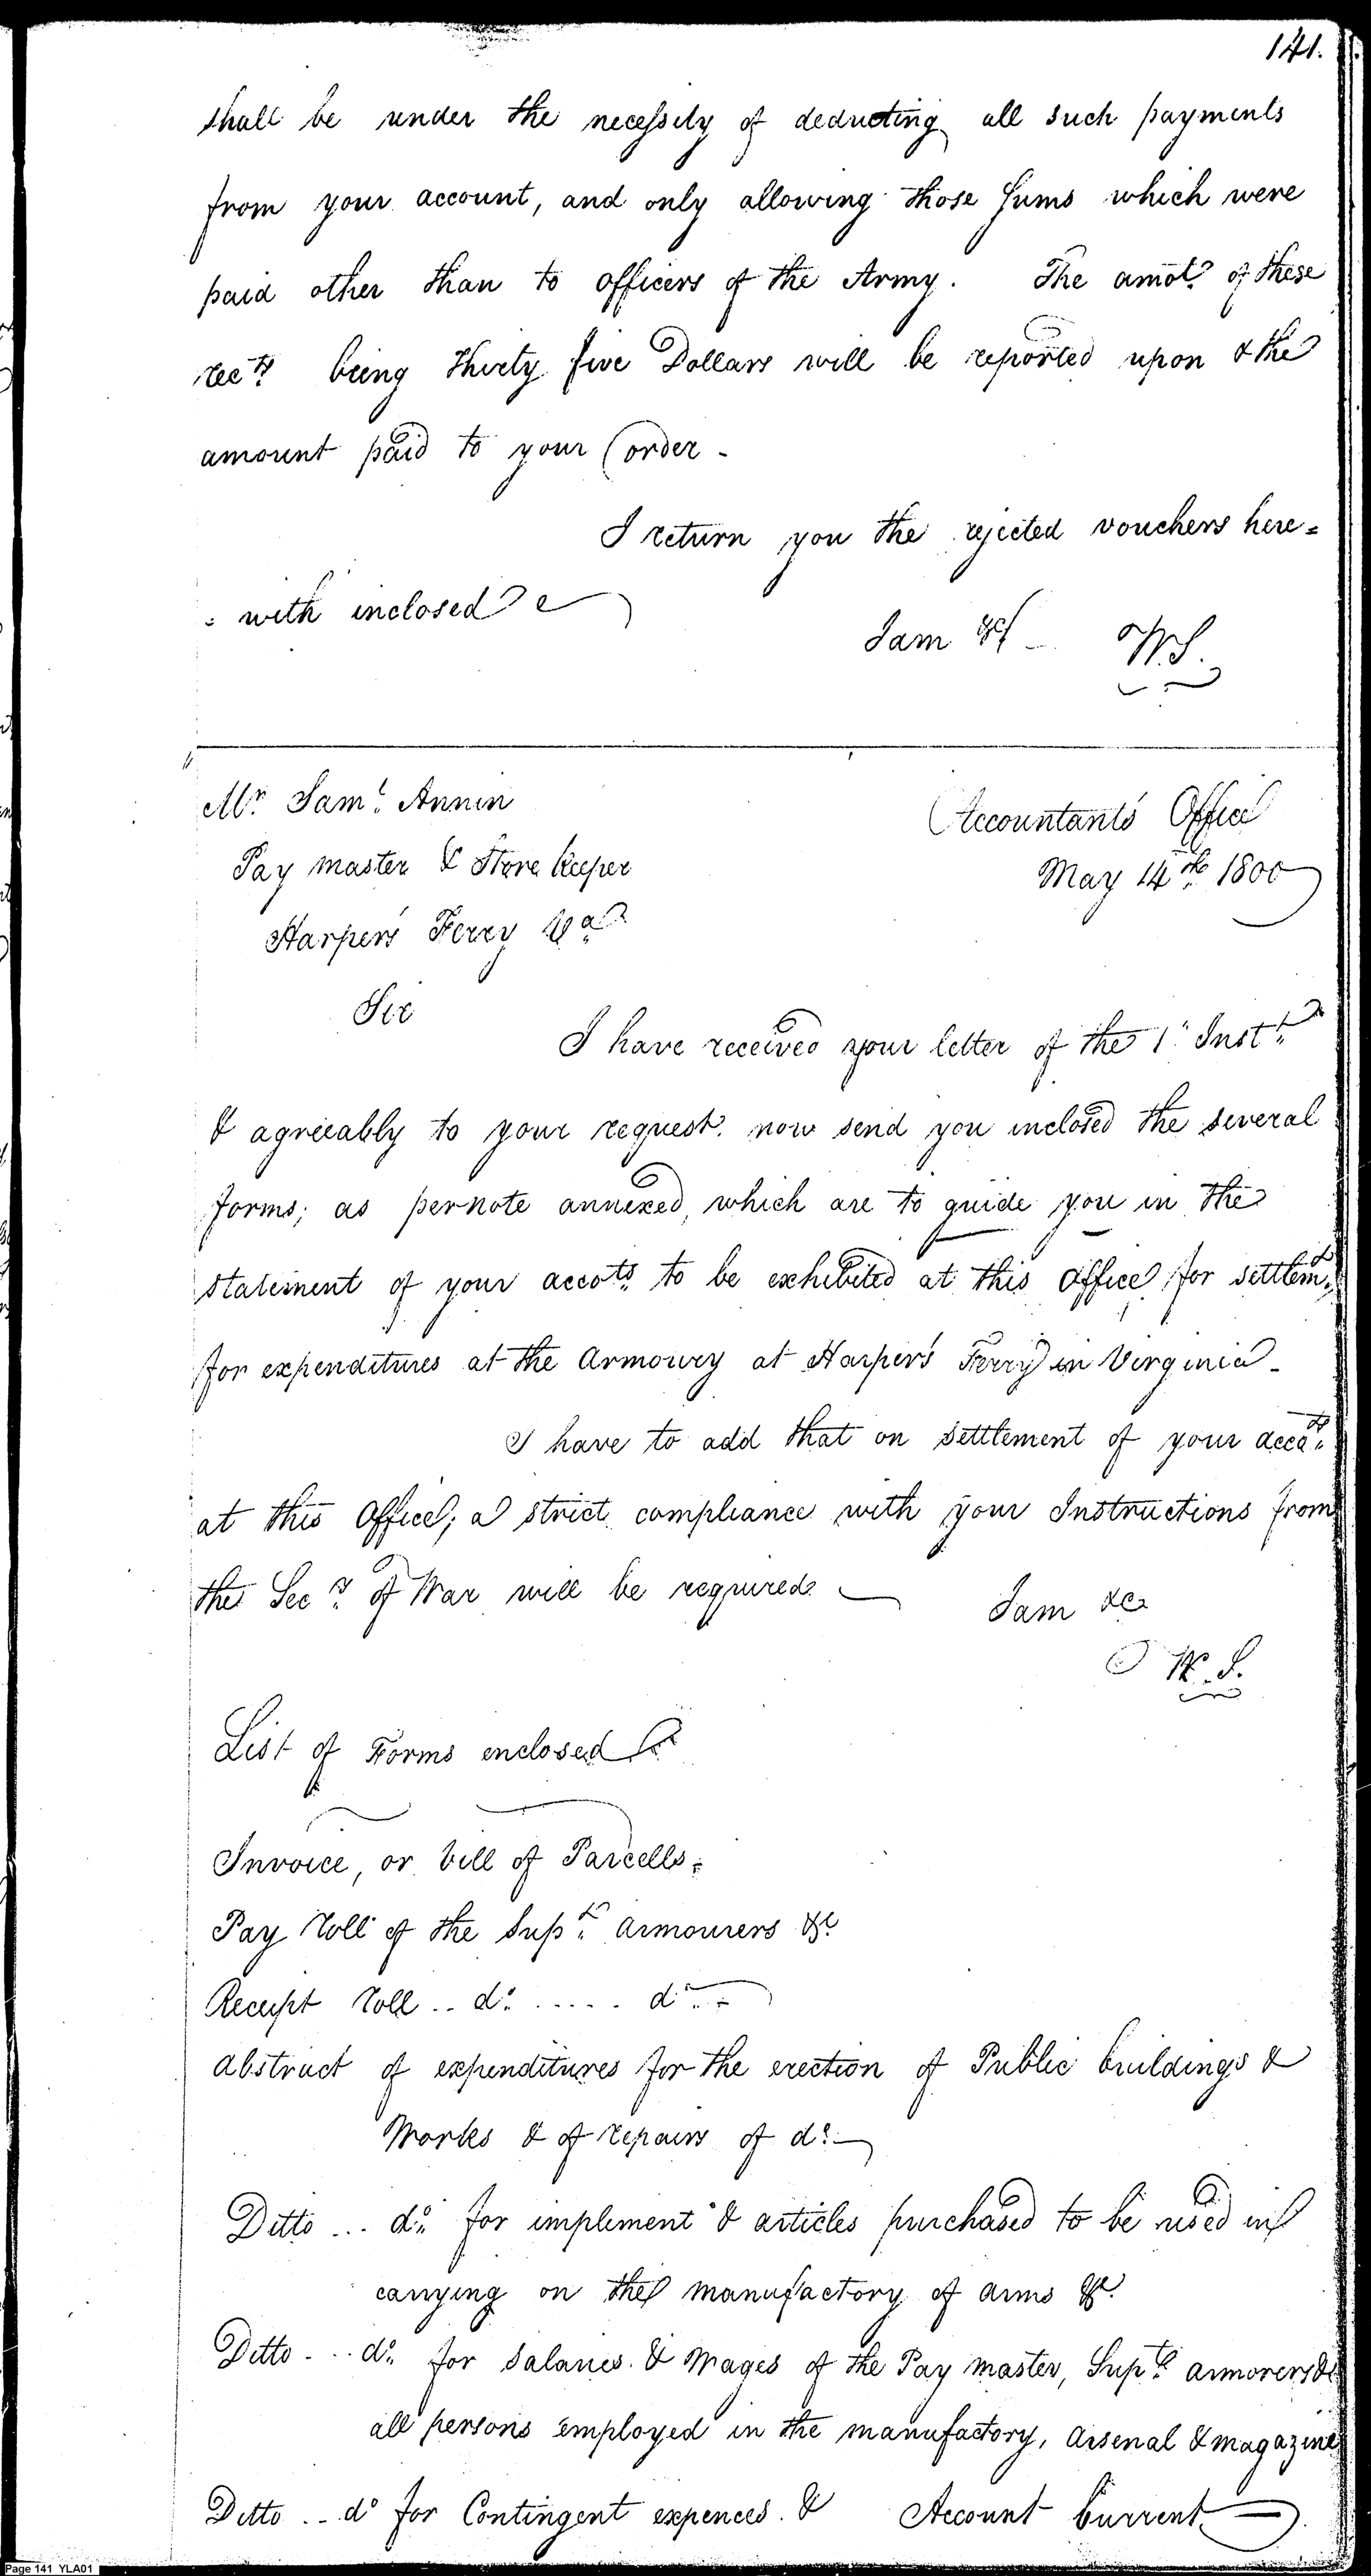 141.
shall be under the necessity of deducting all such payments
from your account, and only allowing those Sums which were
paid other than to officers of the Army. The amot. of these
recds. being thirty five Dollars will be reported upon & the
amount paid to your order -
I return you the rejected vouchers here=
= with inclosed
I am &c - W.S.
Mr. Saml. Annin
Accountants Office
Pay master & Store keeper
May 14th. 1800
Harper's Ferry Va.
Sir
I have received your letter of the 1st Inst.
& agreeably to your request now send you inclosed the several
forms; as per note annexed, which are to guide you in the
statement of your accots. to be exhibited at this Office for settlemt.
for expenditures at the Armoury at Harper's Ferry in Virginia -
I have to add that on settlement of your accots.
at this Office; a strict compliance with your Instructions from
the Secy. of War will be required
I am &c
W. S.
List of Forms enclosed
Invoice, or bill of Parcells.
Pay Roll of the Supt. armourers &c.
Receipt Roll .. do. ..... do. -
abstract of expenditures for the erection of Public buildings &
Works & of repairs of do. -
Ditto ... do. for implement & articles purchased to be used in
carrying on the manufactory of arms &c.
Ditto ... do. for Salaries & Wages of the Pay master, Supt. armorers &
all persons employed in the manufactory, arsenal & magazine
Ditto .. do for Contingent expences. & Account Current
Page 141 YLA01